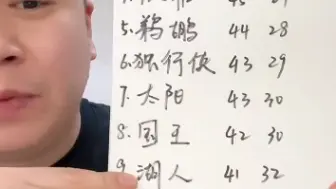 5.鹈鹕 44 28
6.独行侠 43 29
7.太阳 43 30
8.国王 42 30
9.湖人 41 32